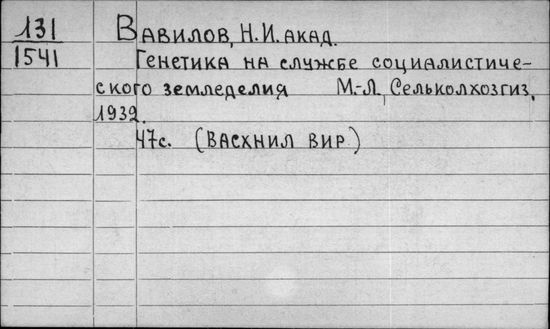 131 Вавилов, Н.И. акад.
1541 Генетика на службе социалистиче-
ского земледелия М.-Л., Сельколхозгиз,
1932.
47с. (ВАСХНИЛ ВИР)